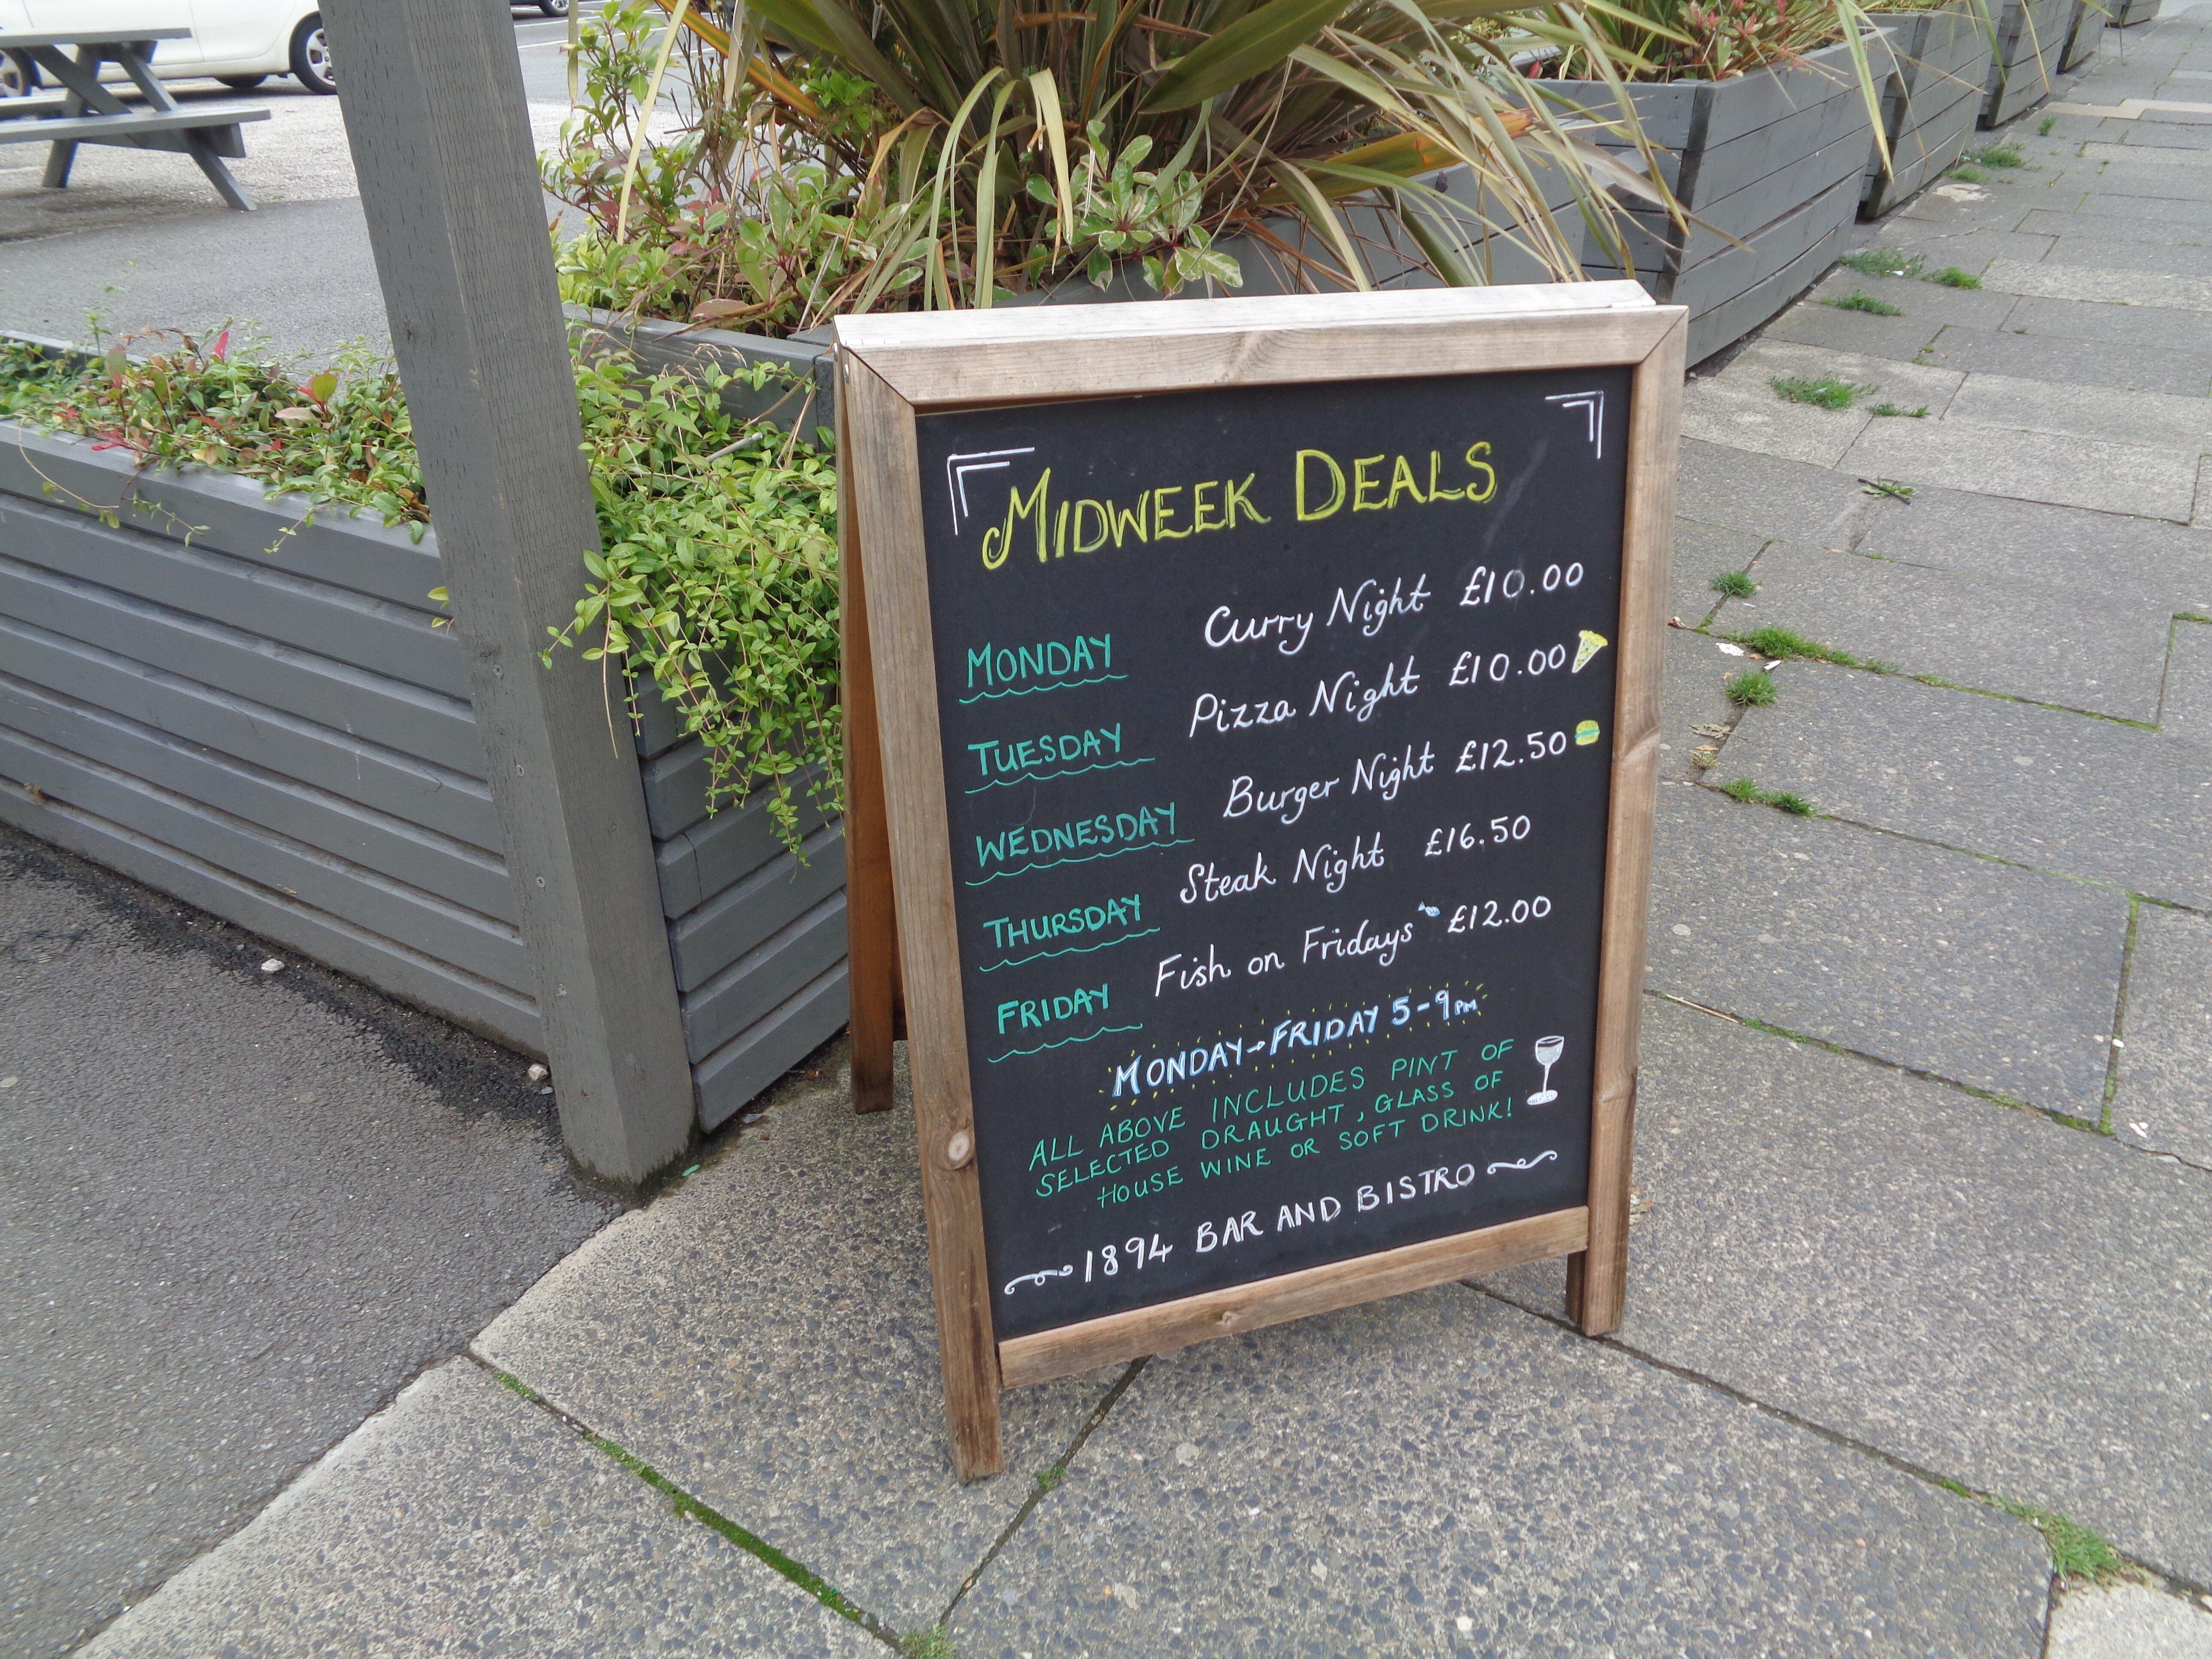 MIDWEEK DEALS
MONDAY Curry Night £10.00
TUESDAY Pizza Night £10.00
WEDNESDAY Burger Night £12.50
THURSDAY Steak Night £16.50
FRIDAY Fish on Fridays £12.00
MONDAY-FRIDAY 5-9PM
ALL ABOVE INCLUDES PINT OF
SELECTED DRAUGHT, GLASS OF
HOUSE WINE OR SOFT DRINK!
1894 BAR AND BISTRO